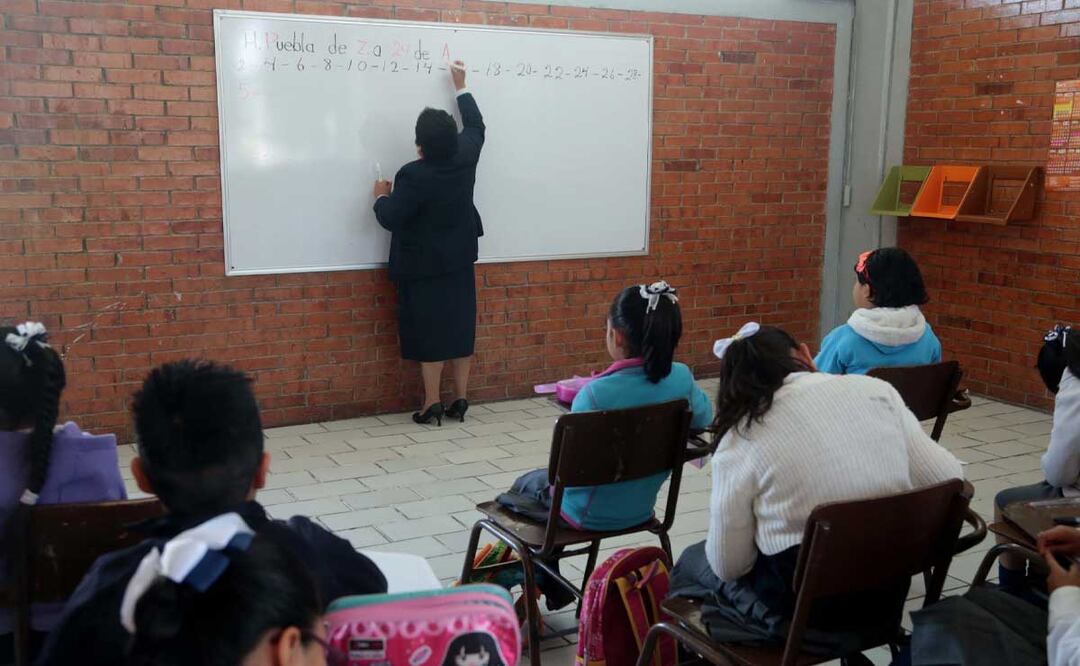 H. Puebla de Z.a 24 de A
2 - 4 - 6 - 8 - 10 - 12 - 14 - - 18 - 20 - 22 - 24 - 26 - 28 -
5 -